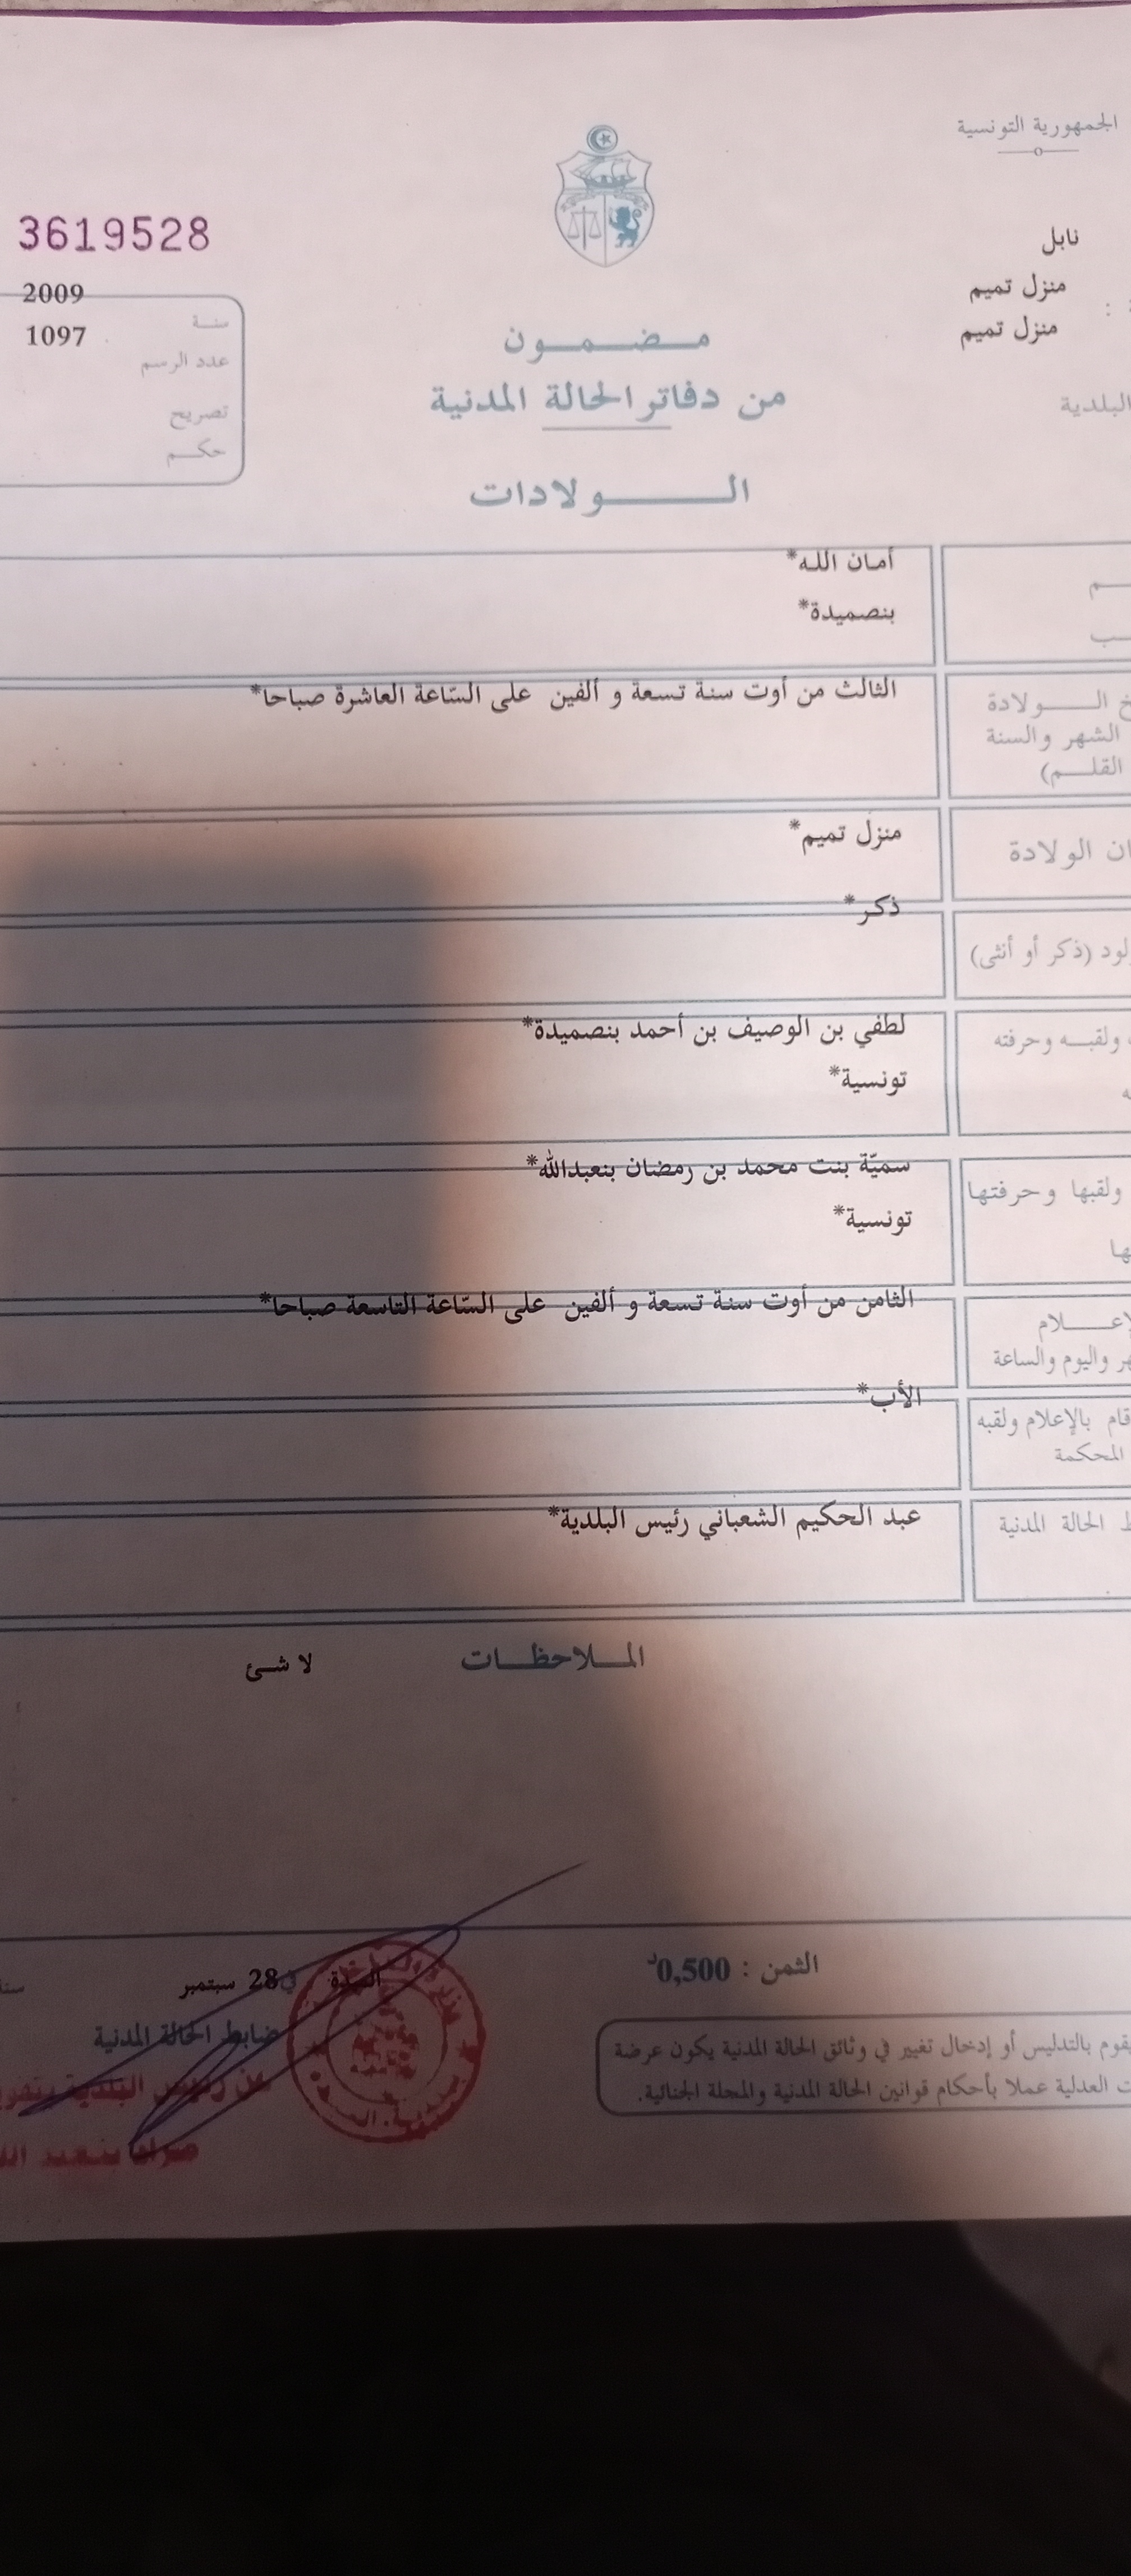 الجمهورية التونسية
3619528
نابل
منزل تميم
منزل تميم
البلدية
2009
سنة
1097
عدد الرسم
تصريح
حكم
مضمون
من دفاتر الحالة المدنية
الولادات
أمان الله*
بنصميدة*
الولادة
الثالث من أوت سنة تسعة و ألفين على السّاعة العاشرة صباحا*
الشهر والسنة
القلم)
الولادة
منزل تميم*
(ذكر أو أنثى)
ذكر*
ولقبه وحرفته
لطفي بن الوصيف بن أحمد بنصميدة*
تونسية*
ولقبها وحرفتها
سميّة بنت محمد بن رمضان بنعبدالله*
تونسية*
الثامن من أوت سنة تسعة و ألفين على السّاعة التاسعة صباحا*
واليوم والساعة
قام بالإعلام ولقبه
الأب*
المحكمة
الحالة المدنية
عبد الحكيم الشعباني رئيس البلدية*
الملاحظات
لا شئ
الثمن : 0,500د
في 28 سبتمبر
ضابط الحالة المدنية
بالتدليس أو إدخال تغيير في وثائق الحالة المدنية يكون عرضة
العدلية عملا بأحكام قوانين الحالة المدنية والمجلة الجنائية.